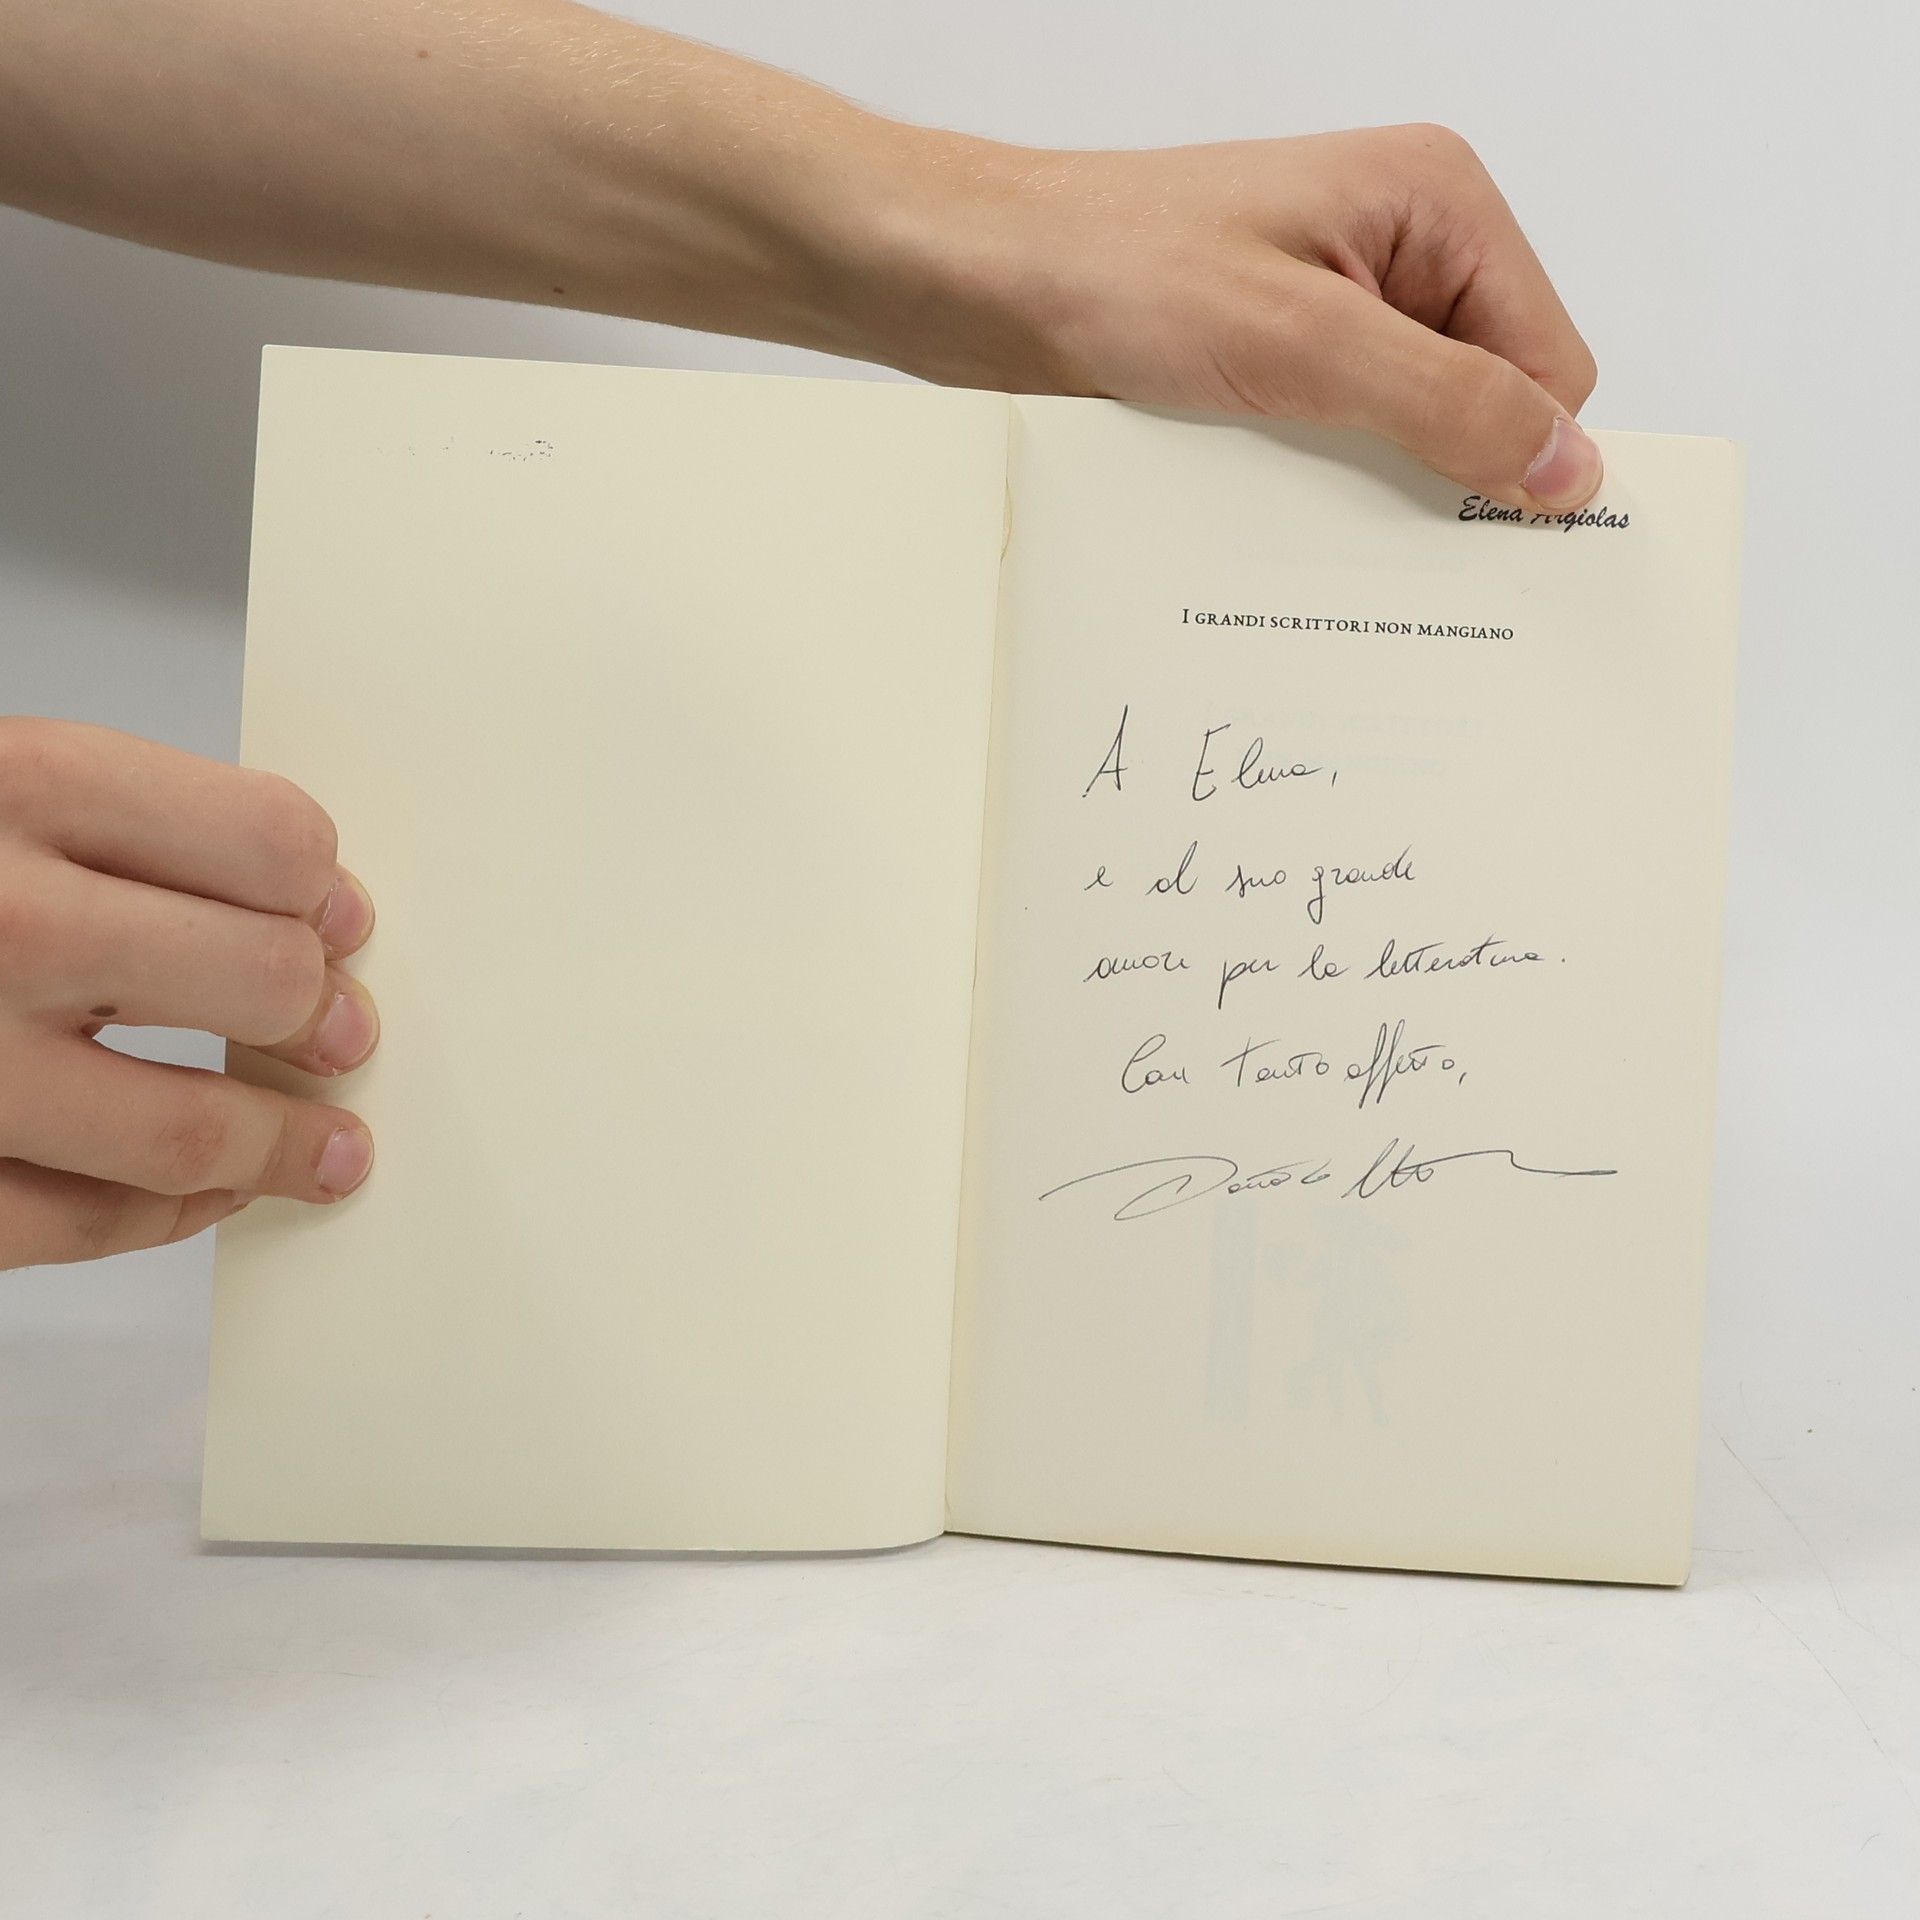 Elena Argiolas
I GRANDI SCRITTORI NON MANGIANO
A Elena,
e al suo grande
amore per la letteratura.
Con tanto affetto,